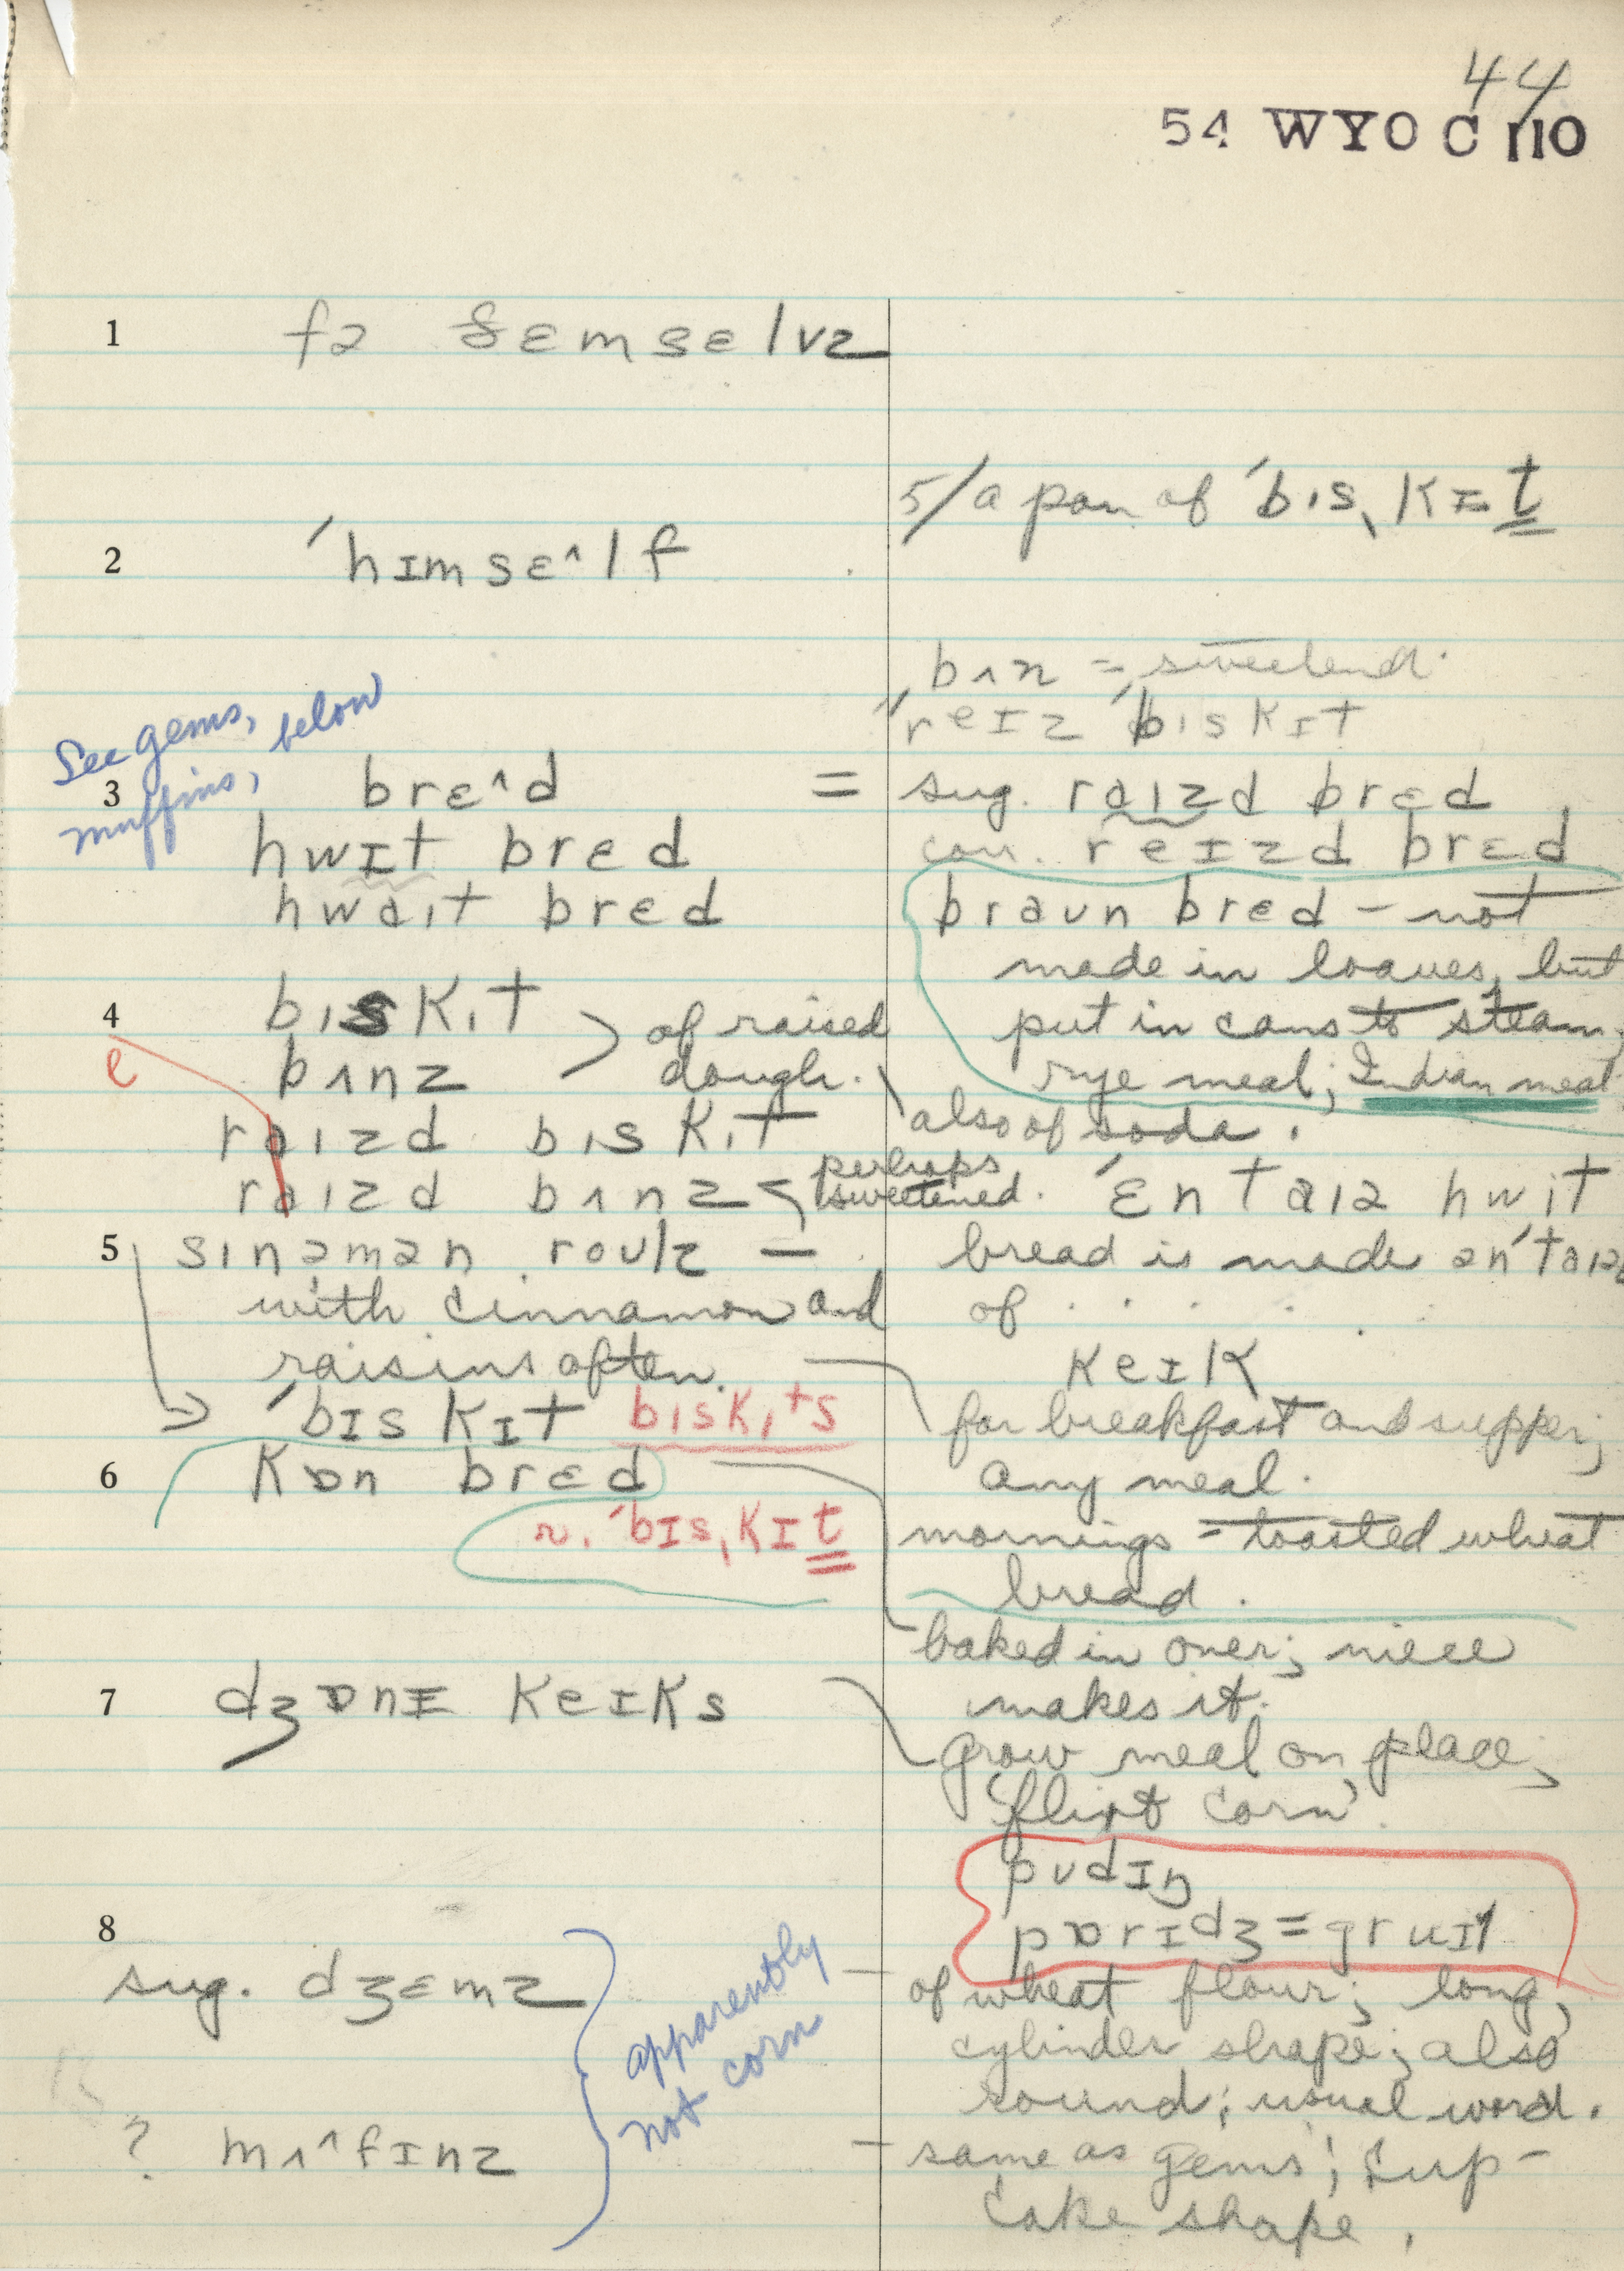 44
54 WYO C 110
1 fə ðɛmsɛlvz
5/ a pan of ˈbɪsˌkɪt
2 ˈhɪmsɛ^lf
bʌn = sweetend.
ˈreɪz ˈbɪskɪt
See gems, below
muffins,
3 brɛ^d = sug. raɪzd brɛd
hwɪt brɛd cor. reɪzd brɛd
hwaɪt brɛd braʊn brɛd – not
made in loaves, but
4 bɪskɪt of raised put in cans to steam;
e bʌnz dough. rye meal; Indian meal
raɪzd bɪskɪt also of soda.
raɪzd bʌnz perhaps sweetened. ˈɛntaɪə hwit
5 sɪnəmən roʊlz — bread is made ənˈtaɪə
with cinnamon and of . . . .
raisins often. keɪk
ˈbɪskɪt bɪskɪts for breakfast and supper;
6 kɒn brɛd any meal.
r. ˈbɪsˌkɪt mornings = toasted wheat
bread.
baked in oven; niece
7 dʒɒnɪ keɪks makes it.
grow meal on place;
'flint corn'.
pʊdɪŋ
8 pɒrɪdʒ = gruɪl
sug. dʒɛmz apparently not corn – of wheat flour; long,
cylinder shape; also
round; usual word.
? mʌ^fɪnz – same as gems; cup-
cake shape.